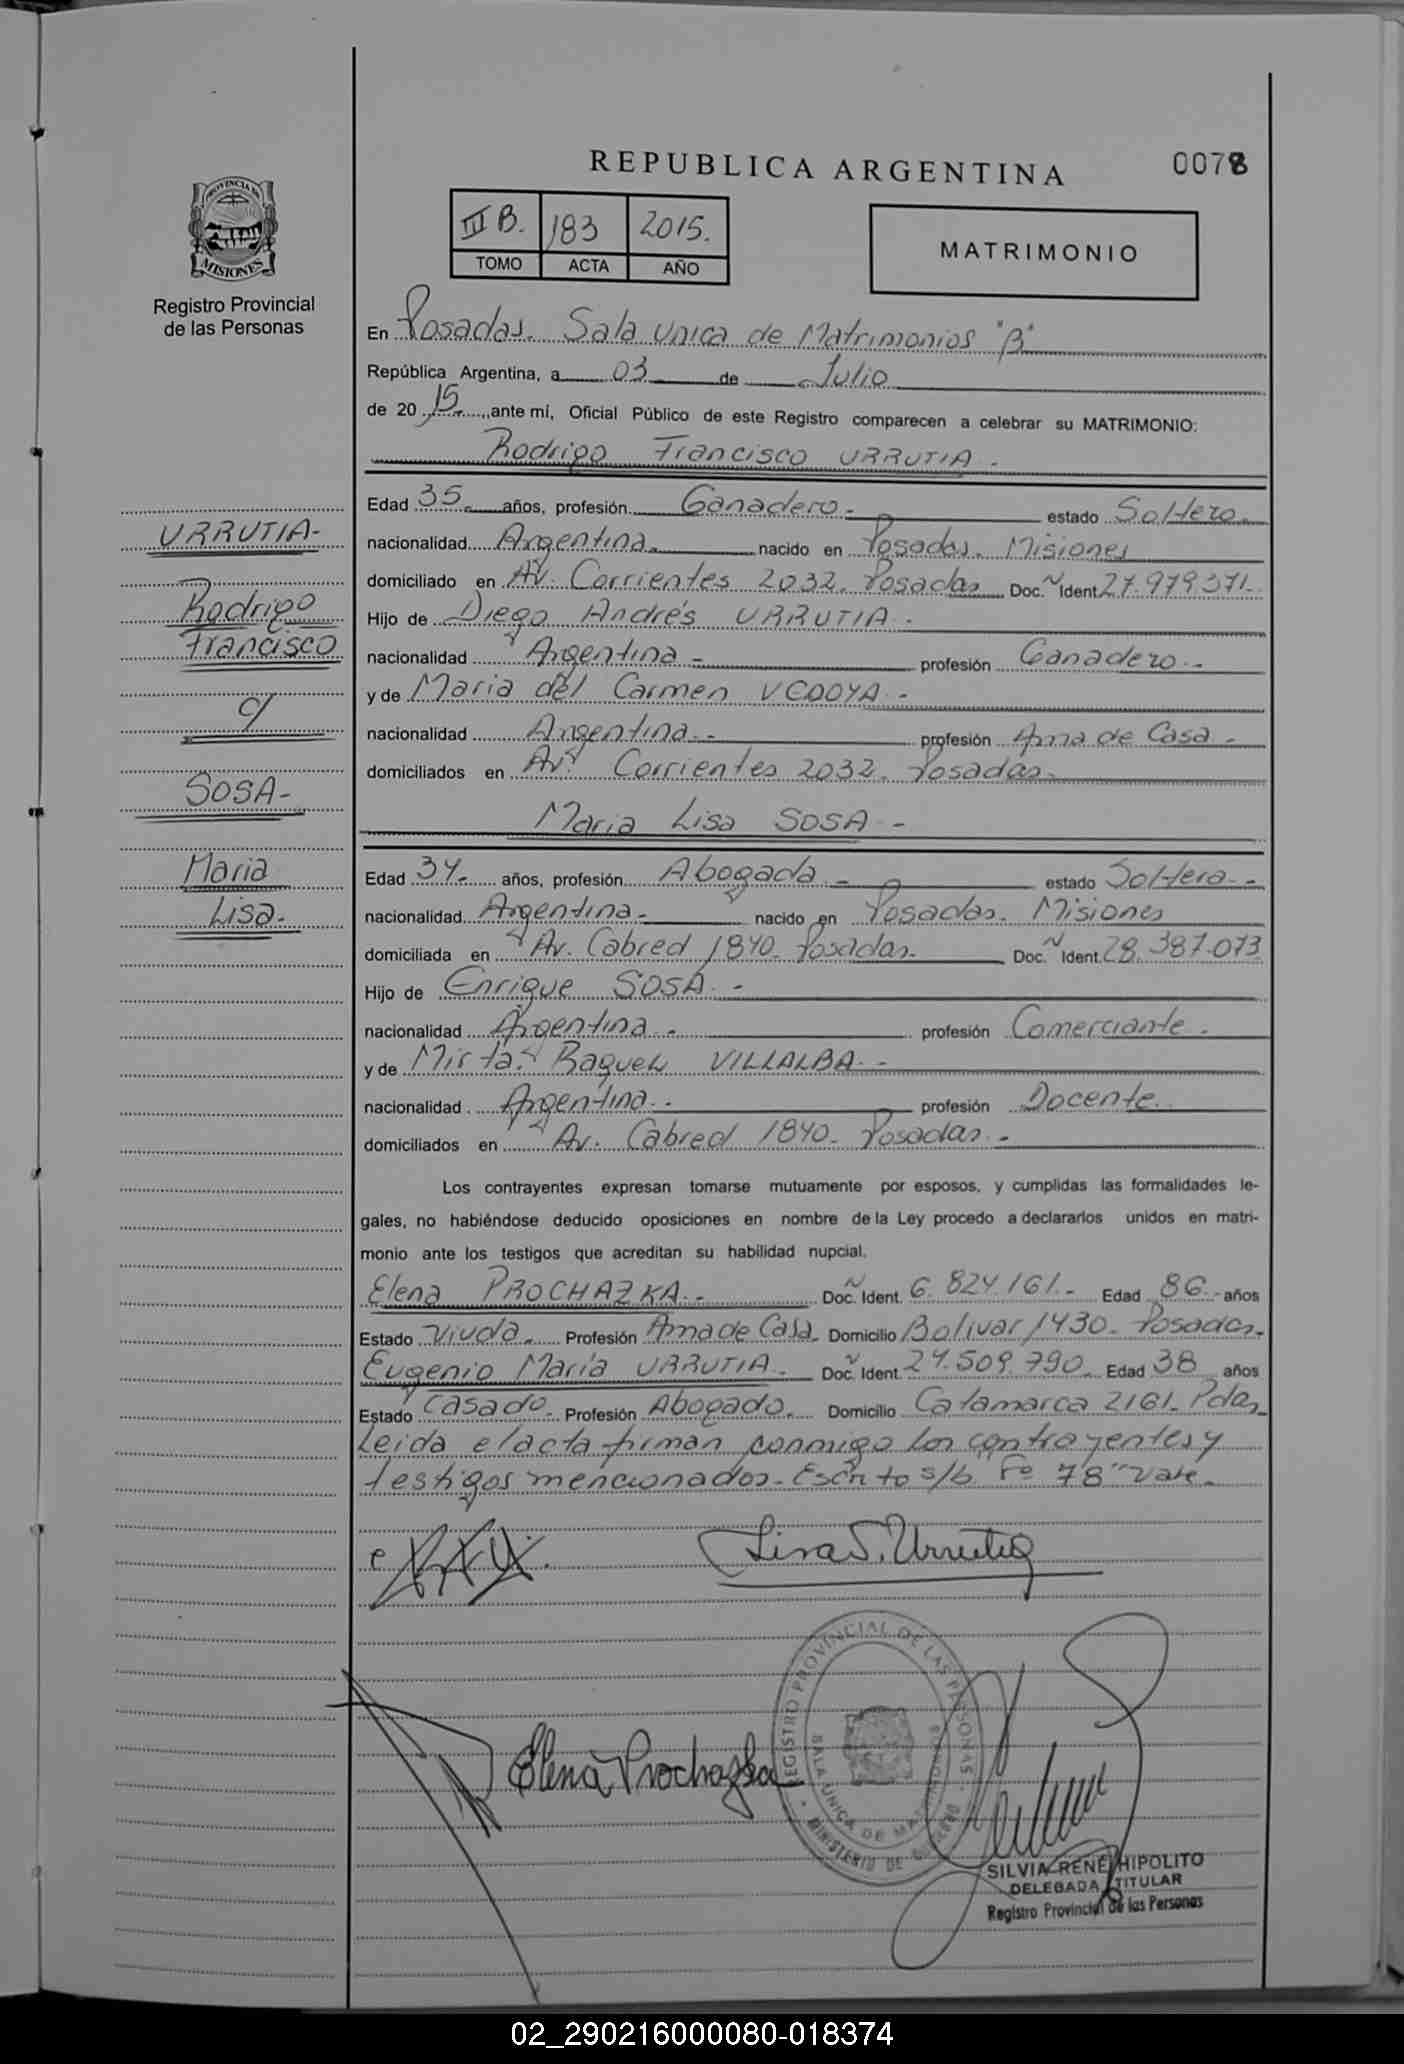 REPUBLICA ARGENTINA
0078
PROVINCIA DE
MISIONES
Registro Provincial
de las Personas
III B. 183 2015.
TOMO ACTA AÑO
MATRIMONIO
En Posadas. Sala Unica de Matrimonios "B"
República Argentina, a 03 de Julio
de 2015. ante mí, Oficial Público de este Registro comparecen a celebrar su MATRIMONIO:
Rodrigo Francisco URRUTIA.-
URRUTIA-
Rodrigo
Francisco
c/
SOSA-
Maria
Lisa.-
Edad 35.- años, profesión Ganadero.- estado Soltero.-
nacionalidad Argentina.- nacido en Posadas. Misiones
domiciliado en Av. Corrientes 2032. Posadas Doc. Ident. 27.979.371.-
Hijo de Diego Andrés URRUTIA.-
nacionalidad Argentina.- profesión Ganadero.-
y de Maria del Carmen VEDOYA.-
nacionalidad Argentina.- profesión Ama de Casa.-
domiciliados en Av. Corrientes 2032. Posadas.-
Maria Lisa SOSA.-
Edad 34.- años, profesión Abogada.- estado Soltera.-
nacionalidad Argentina.- nacido en Posadas. Misiones
domiciliada en Av. Cabred 1840. Posadas.- Doc. Ident. 28.387.073
Hijo de Enrique SOSA.-
nacionalidad Argentina.- profesión Comerciante.-
y de Mirta Raquel VILLALBA.-
nacionalidad Argentina.- profesión Docente.
domiciliados en Av. Cabred 1840. Posadas.-
Los contrayentes expresan tomarse mutuamente por esposos, y cumplidas las formalidades le-
gales, no habiéndose deducido oposiciones en nombre de la Ley procedo a declararlos unidos en matri-
monio ante los testigos que acreditan su habilidad nupcial.
Elena PROCHAZKA.- Doc. Ident. 6.824.161.- Edad 86.- años
Estado Viuda.- Profesión Ama de Casa. Domicilio Bolivar 1430. Posadas.-
Eugenio María URRUTIA.- Doc. Ident. 24.509.790.- Edad 38 años
Estado Casado.- Profesión Abogado.- Domicilio Catamarca 2161. Pdas.-
Leida el acta firman conmigo los contrayentes y
testigos mencionados.- Escrito s/b "Fº 78" Vale.-
Lisa S. Urrutia
Elena Prochazka
REGISTRO PROVINCIAL DE LAS PERSONAS
SALA ÚNICA DE MATRIMONIOS
MINISTERIO DE GOBIERNO
SILVIA RENÉ HIPOLITO
DELEGADA TITULAR
Registro Provincial de las Personas
02_290216000080-018374